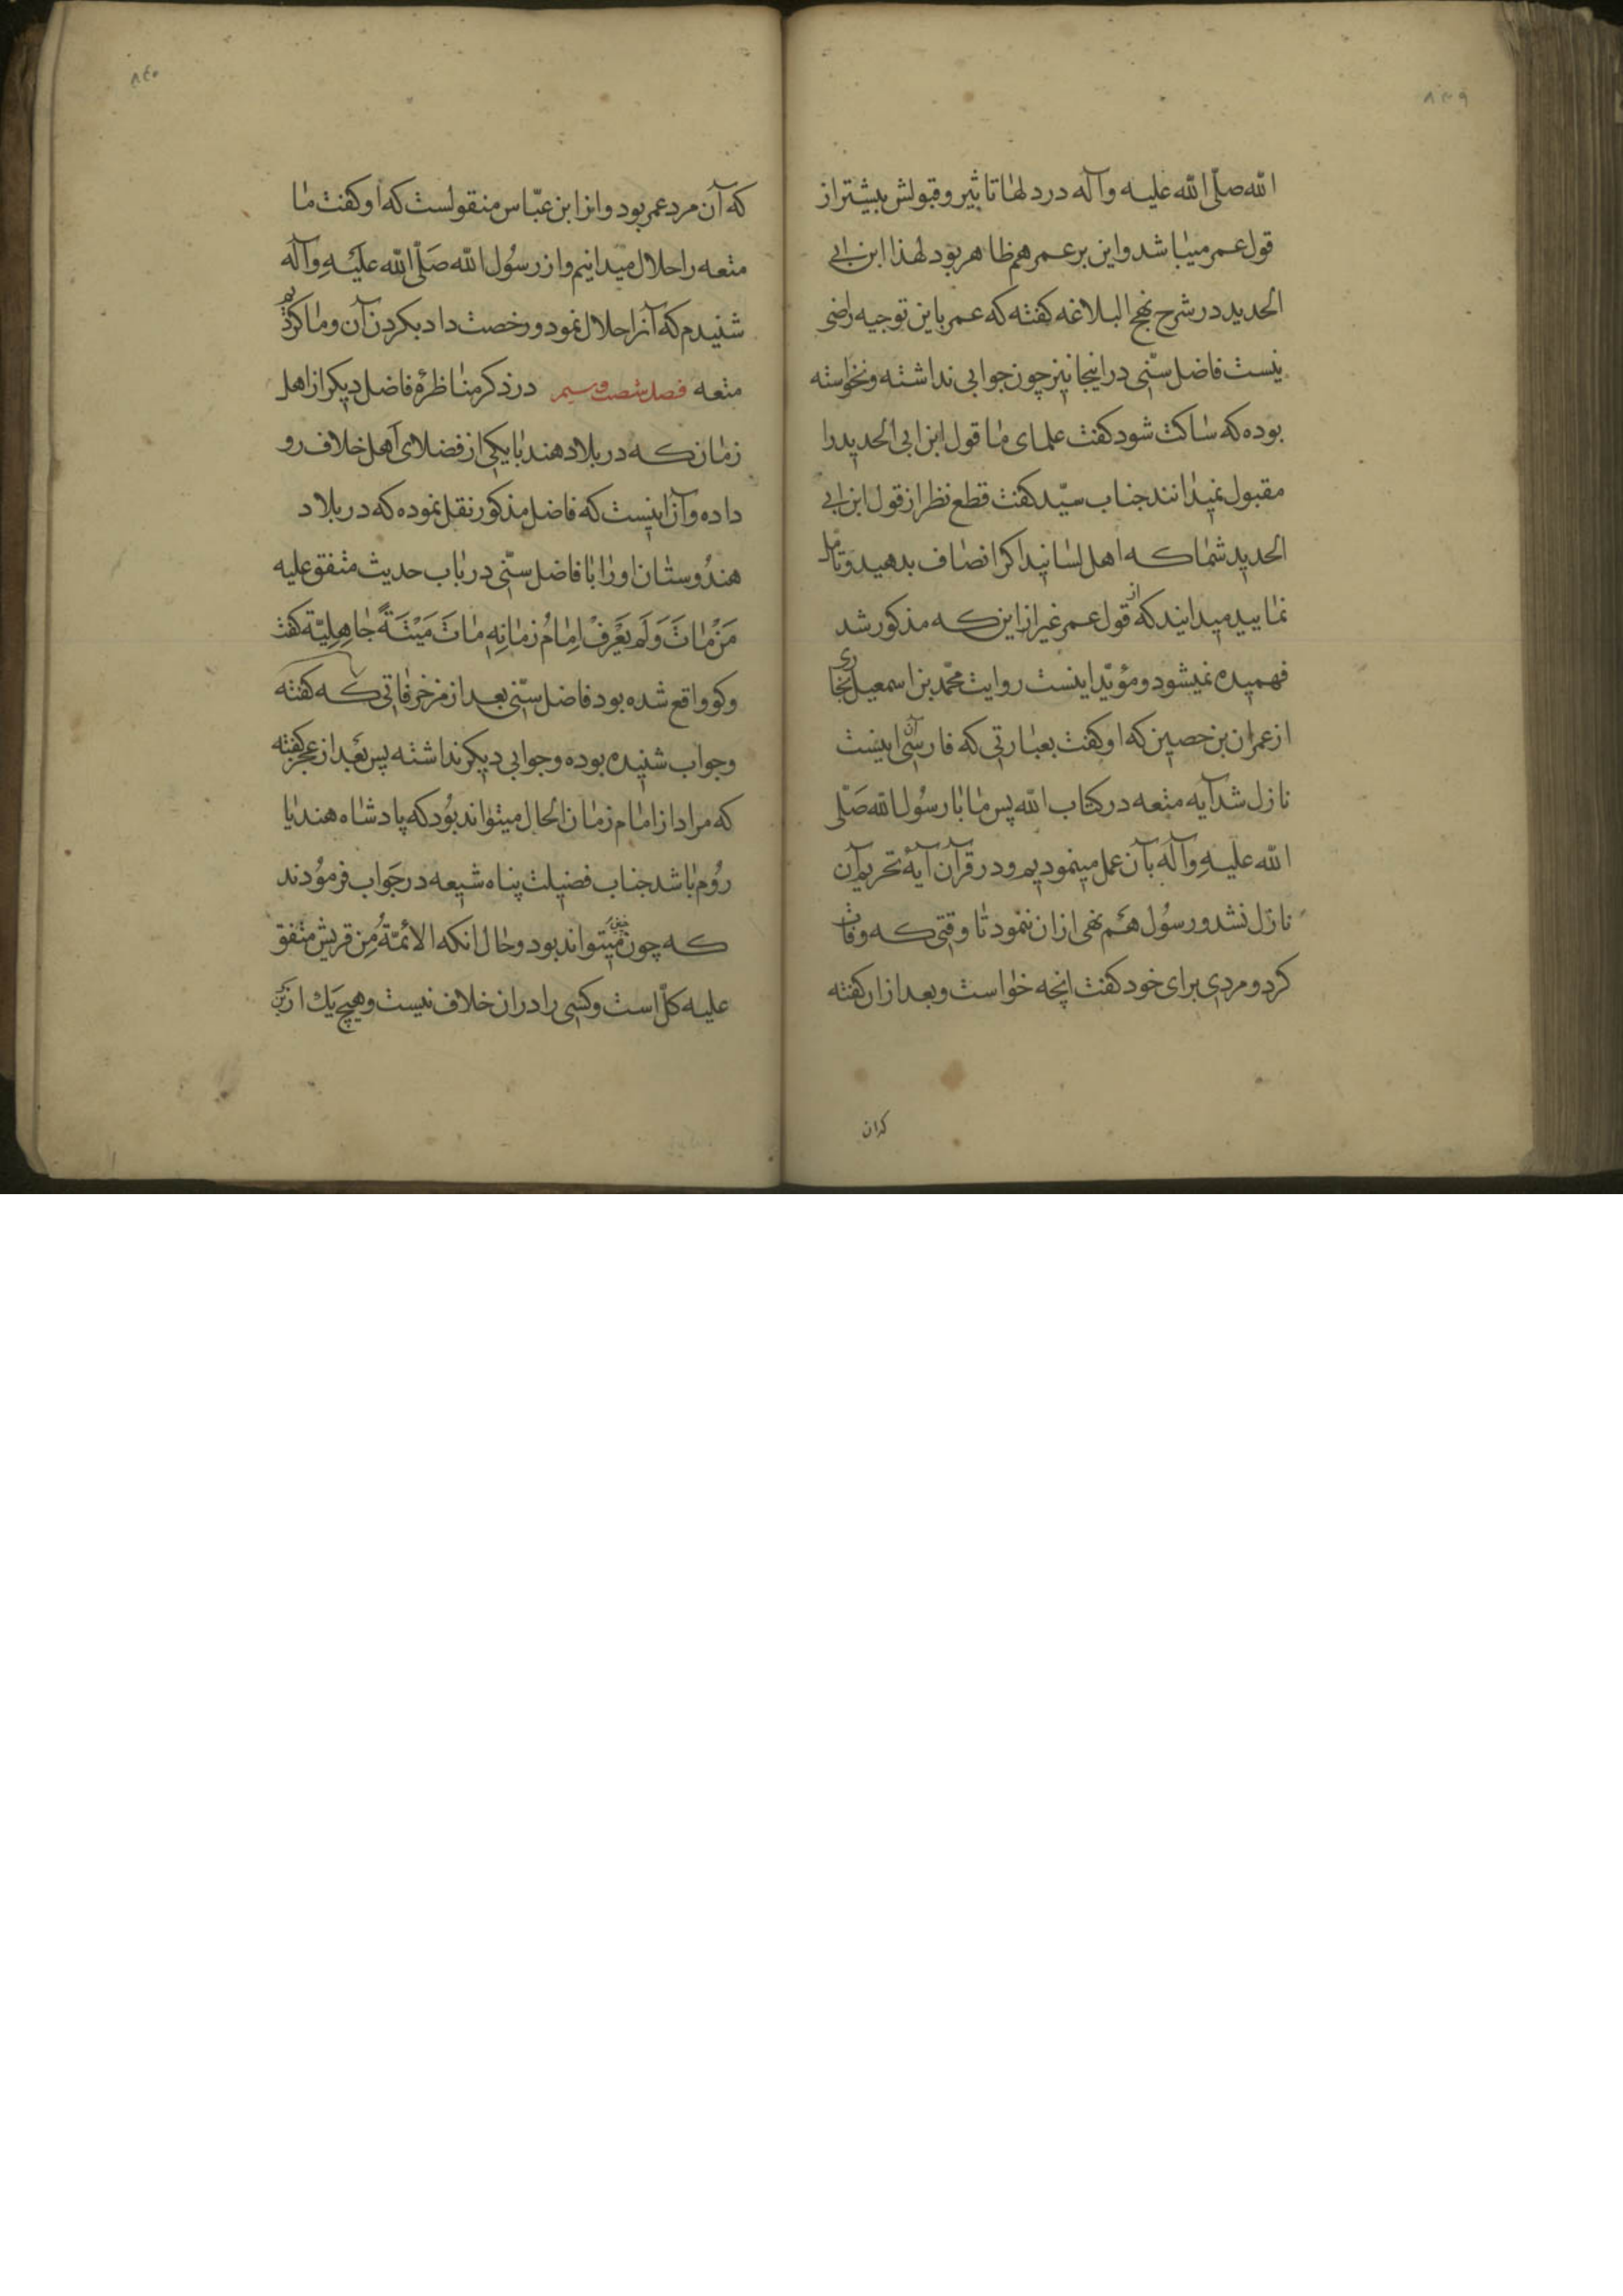 ۸۳۹
الله صلّی الله علیه وآله در دلها تاثیر و قبولش بیشتر از
قول عمر میباشد و این بر عمر هم ظاهر بود لهذا ابن ابی
الحدید در شرح نهج البلاغه کفته که عمر باین توجیه راضی
نیست فاضل سنّی در اینجا نیز چون جوابی نداشته و نخواسته
بوده که ساکت شود کفت علمای ما قول ابن ابی الحدید را
مقبول نمیدانند جناب سیّد کفت قطع نظر از قول ابن ابی
الحدید شما که اهل لسانید اکر انصاف بدهید و تامل
نمایید میدانید که از قول عمر غیر از این که مذکور شد
فهمیده نمیشود و مؤیّد اینست روایت محمّد بن اسمعیل بخاری
از عمران بن حصین که او کفت بعبارتی که فارسی آن اینست
نازل شد آیه متعه در کتاب الله پس ما با رسُول الله صَلّی
الله علیهِ وآله بآن عمل مینمودیم و در قرآن آیهٔ تحریم آن
نازل نشد و رسُول هَم نهی ازان ننمود تا وقتی که وفات
کرد و مردی برای خود کفت انچه خواست و بعد ازان کفته
کران
۸٤۰
که آن مرد عمر بود و از ابن عبّاس منقولست که او کفت ما
متعه را حلال میدانیم و از رسُول الله صَلّی الله علَیْهِ وآله
شنیدم که آنرا حلال نمود و رخصت داد بکردن آن و ما کردیم
متعه فصل شصت و سیم در ذکر مناظرهٔ فاضل دیکر از اهل
زمان که در بلاد هند با یکی از فضلای اَهل خلاف رو
داده و آن اینست که فاضل مذکور نقل نموده که در بلاد
هندُوستان اورا با فاضل سنّی در باب حدیث متفق علیه
مَنْ مٰاتَ وَلَم یَعْرِفْ اِمٰامُ زمٰانِهِ مٰاتَ مَیْتَةً جٰاهِلِیّة کفت
وکو واقع شده بود فاضل سنّی بعد از مزخرفاتی که کفته
وجواب شنیده بوده وجوابی دیکر نداشته پس بَعْد از عجز کفته
که مراد از امام زمان الحال میتواند بُود که پادشاه هند یا
رُوم باشد جناب فضیلت پناه شیعه در جَواب فرمُودند
که چون چنین میتواند بود و حال انکه الائمّةُ مِن قریش متفق
علیه کلّ است و کسی را دران خلاف نیست و هیچ یَك از